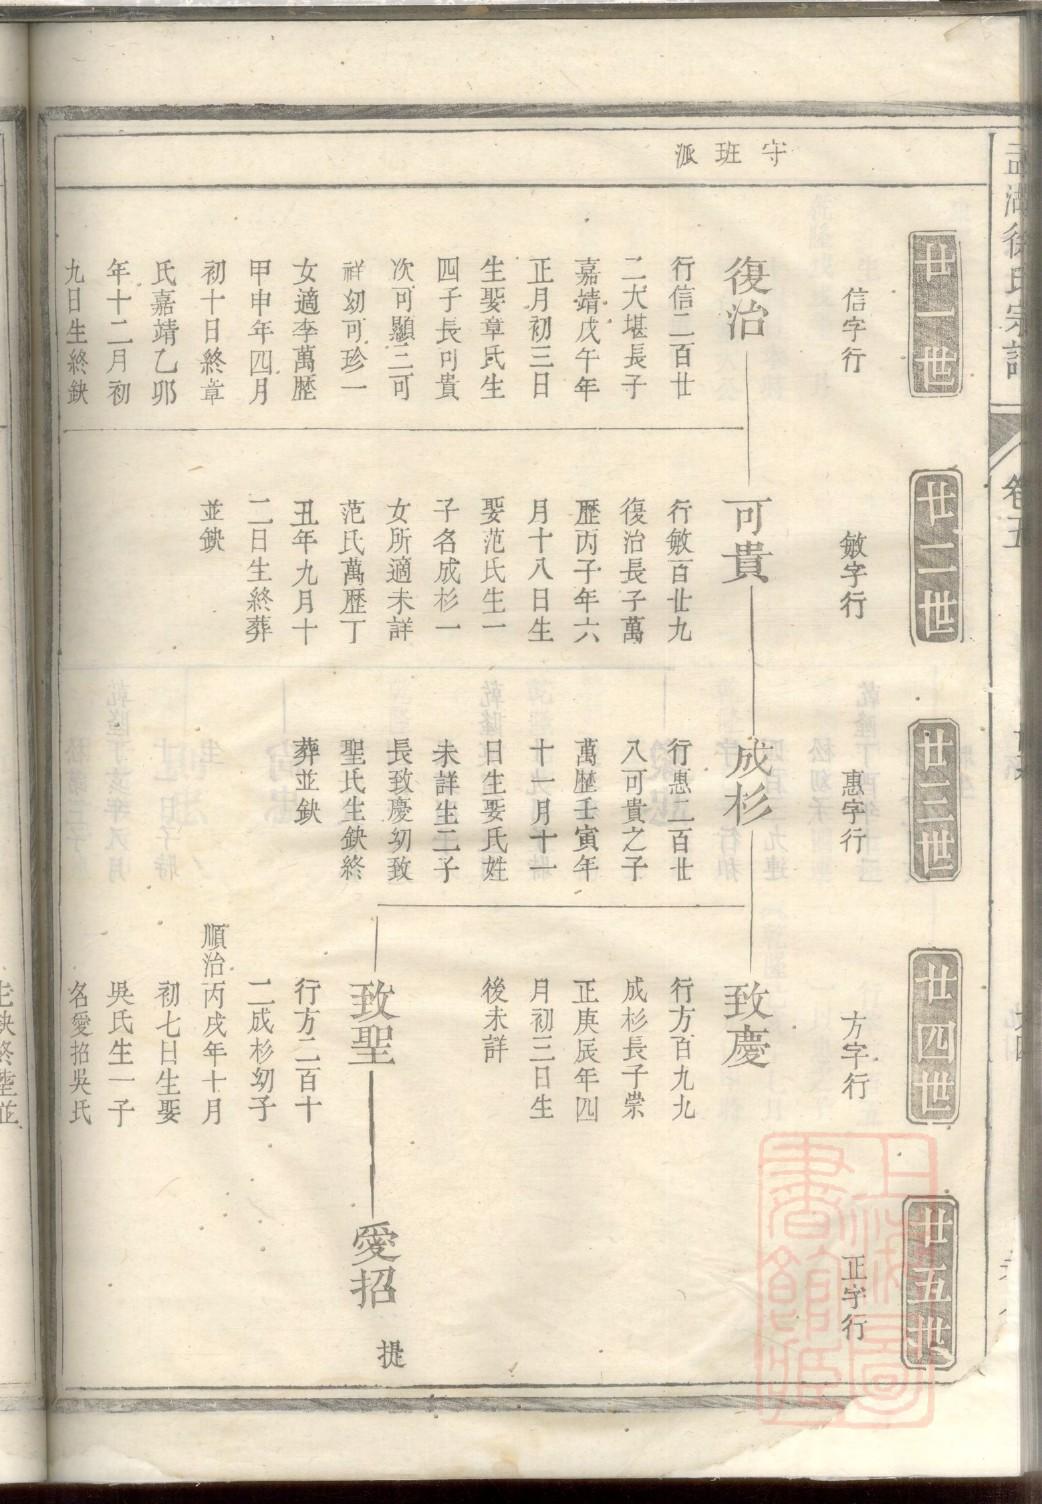 守班派
湖徐氏宗譜
卷五
廿一世
信字行
復治
行信二百廿
二大堪長子
嘉靖戊午年
正月初三日
生娶章氏生
四子長可貴
次可顯三可
祥幼可珍一
女適李萬歷
甲申年四月
初十日終章
氏嘉靖乙卯
年十二月初
九日生終缺
廿二世
敏字行
可貴
行敏百廿九
復治長子萬
歷丙子年六
月十八日生
娶范氏生一
子名成杉一
女所適未詳
范氏萬歷丁
丑年九月十
二日生終葬
並缺
廿三世
惠字行
成杉
行惠二百廿
八可貴之子
萬歷壬寅年
十一月十一
日生娶氏姓
未詳生二子
長致慶幼致
聖氏生缺終
葬並缺
廿四世
方字行
致慶
行方百九九
成杉長子崇
正庚辰年四
月初三日生
後未詳
致聖
行方二百十
二成杉幼子
順治丙戌年十月
初七日生娶
吳氏生一子
名愛招吳氏
廿五世
正字行
愛招
提
生缺終塟並
上海圖書館藏